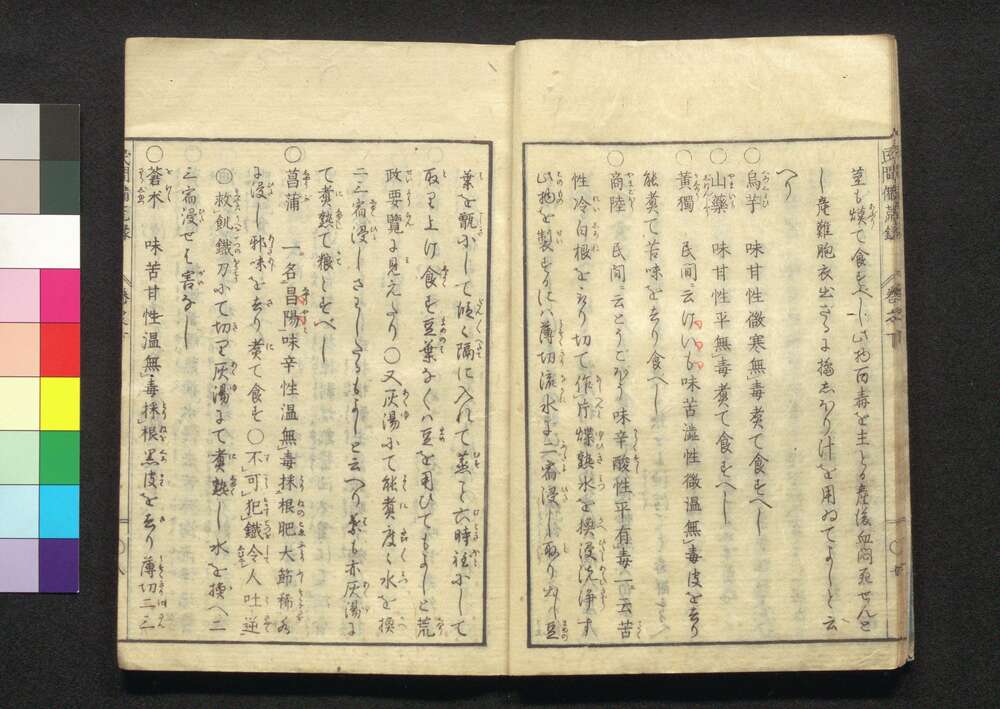 民間備荒録
莖も煠て食すべし此物百毒を主とる産後血悶死せんと
し産難胞衣出ざるに擣しぼり汁を用ゐてよしと云
へり
○烏芋 味甘性微寒無毒煮て食すへし
○山藥 味甘性平無毒煮て食すへし
○黄獨 民間ニ云けいも味苦澁性微温無毒皮を去り
能煮て苦味を去り食へし
○商陸 民間ニ云とうごぼう味辛酸性平有毒一云苦
性冷白根をとり切て作片煠熟水を換浸洗浄す
此物を製するには薄切流水に二宿浸し取り出し豆
葉を甑にして隔に入れて蒸こと六時程にして
取り上け食す豆葉なくは豆を用ひてもよしと荒
政要覽に見えたり○又灰湯にて能煮度々水を換
二三宿浸しさらしたるもよしと云へり葉も亦灰湯に
て煮熟て粮とすべし
○菖蒲 一名昌陽味辛性温無毒採根肥大節稀水
に浸し邪味を去り煮て食す○不可犯鐵令人吐逆
救飢鐵刀にて切り灰湯にて煮熟し水を換へ二
三宿浸せは害なし
○蒼朮 味苦甘性温無毒採根黒皮を去り薄切二三